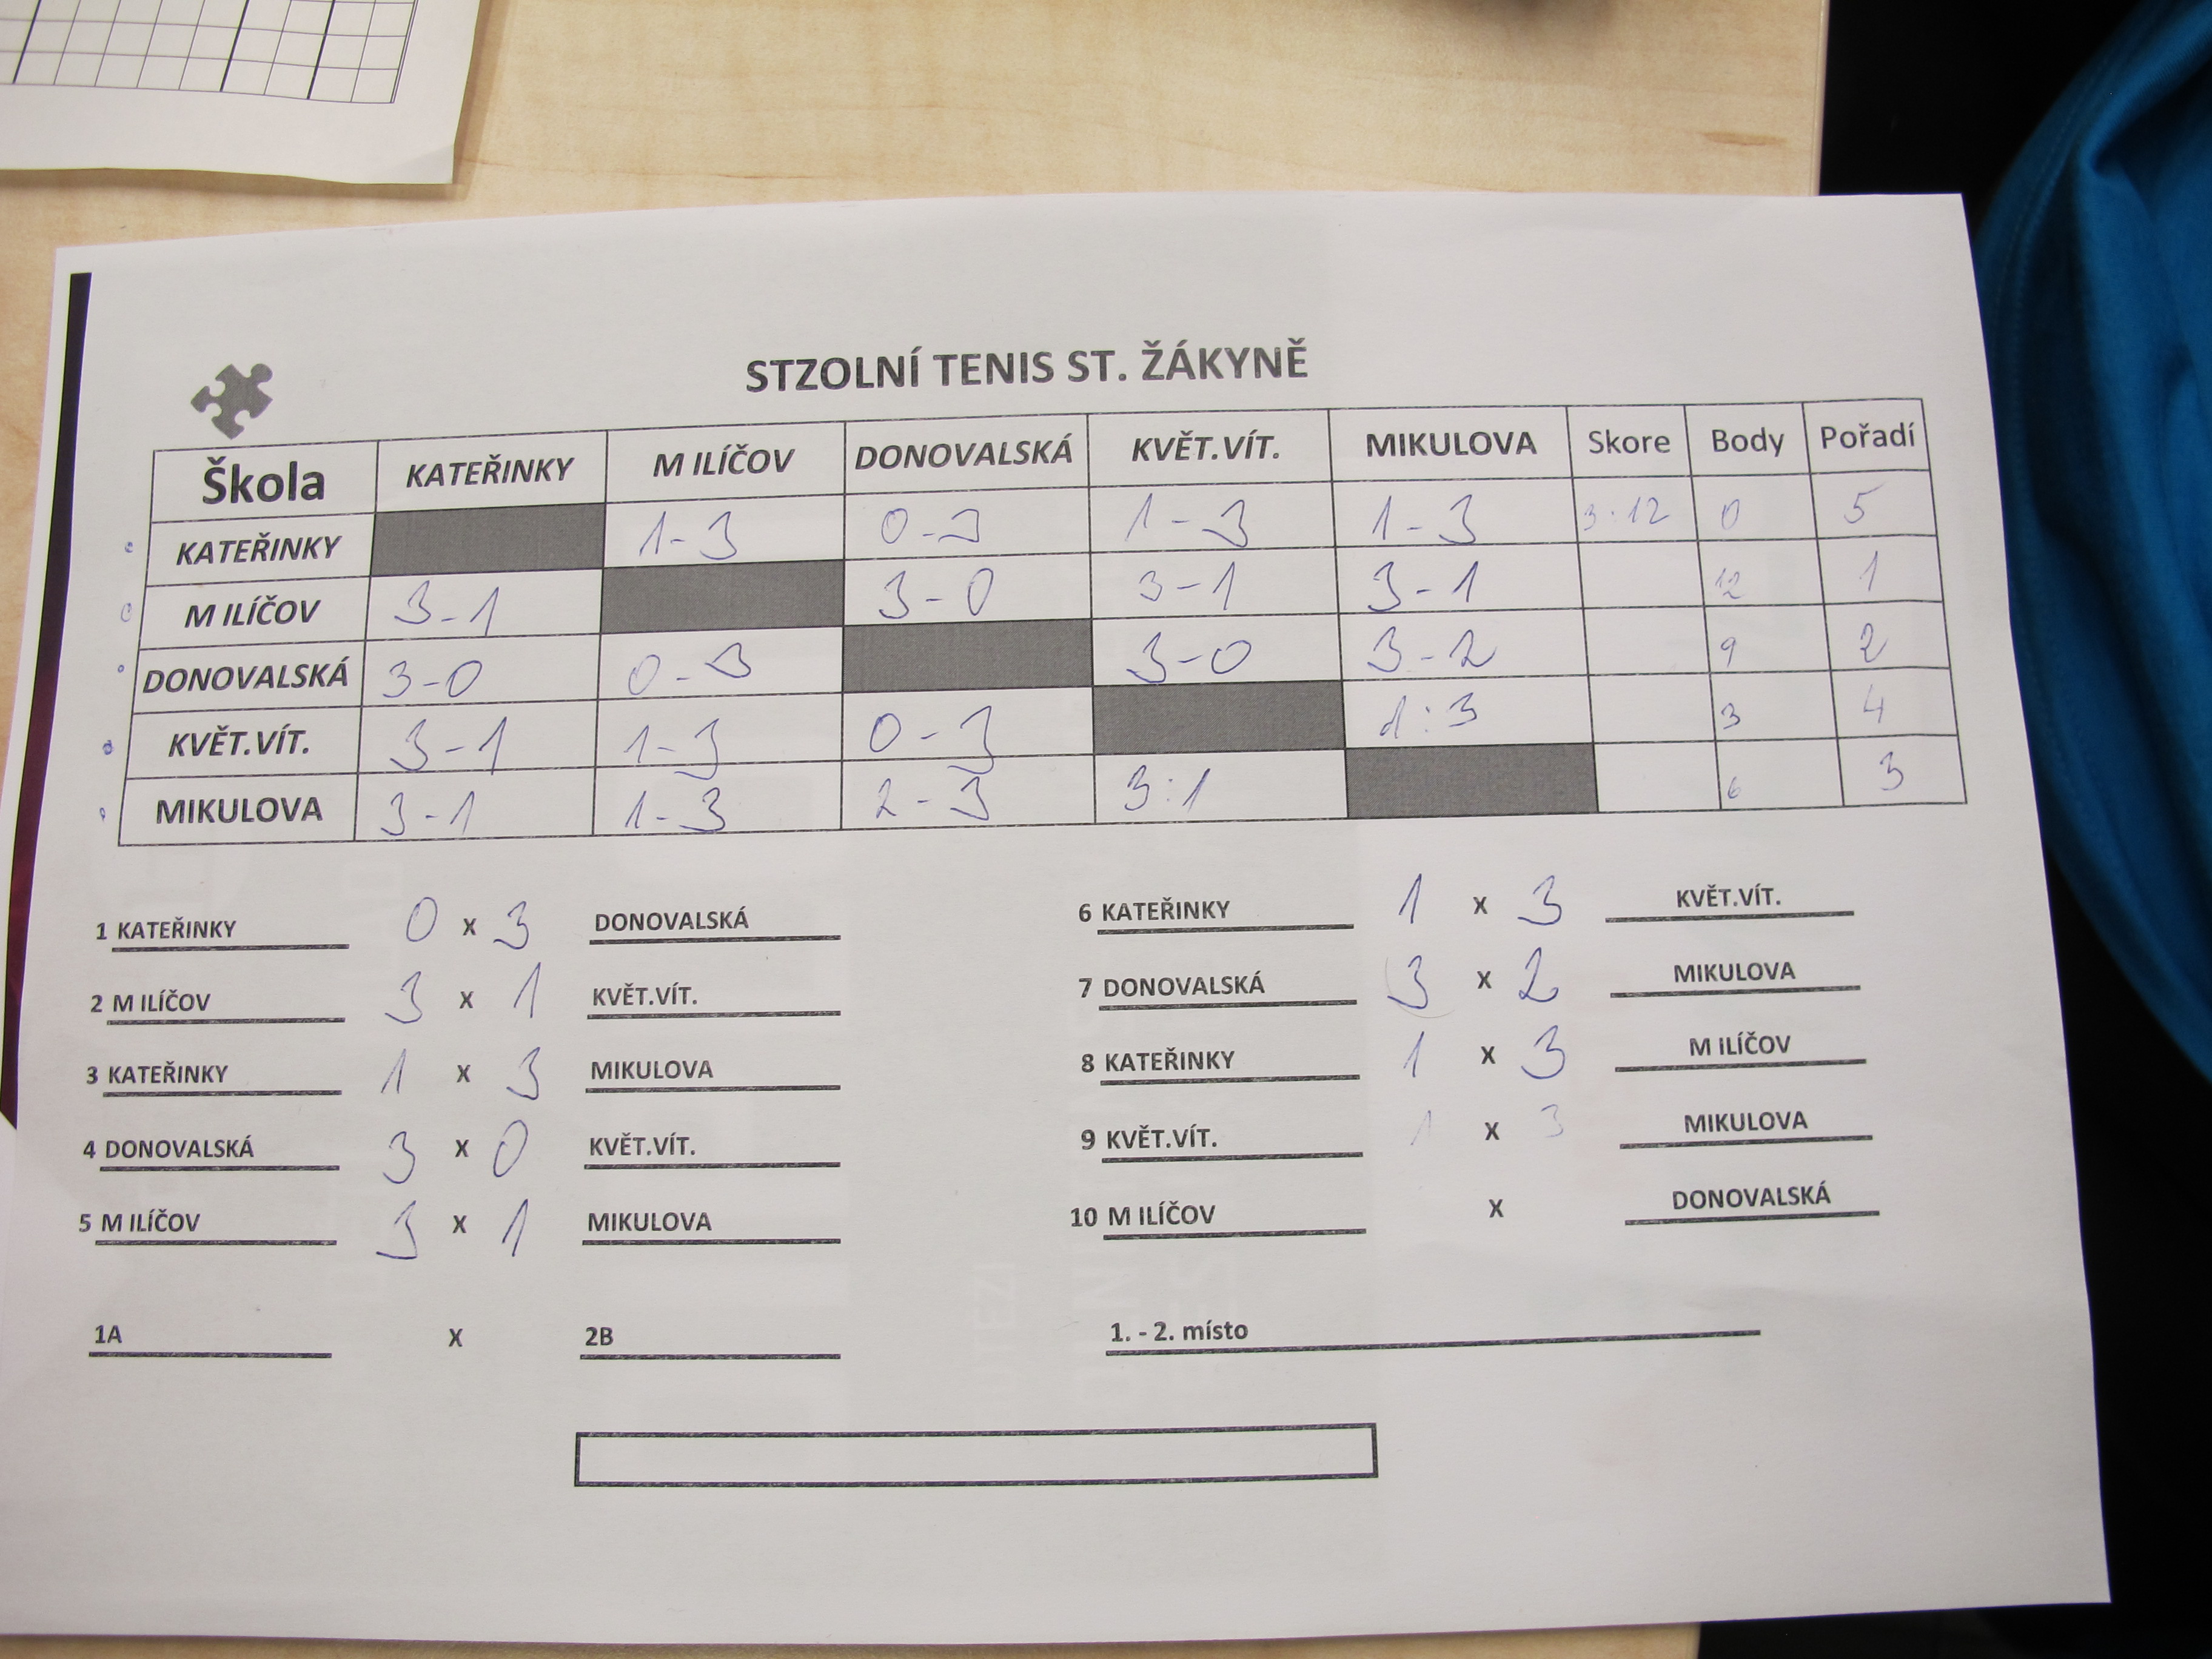 STZOLNÍ TENIS ST. ŽÁKYNĚ
Škola KATEŘINKY M ILÍČOV DONOVALSKÁ KVĚT.VÍT. MIKULOVA Skore Body Pořadí
KATEŘINKY 1-3 0-3 1-3 1-3 3:12 0 5
M ILÍČOV 3-1 3-0 3-1 3-1 12 1
DONOVALSKÁ 3-0 0-3 3-0 3-2 9 2
KVĚT.VÍT. 3-1 1-3 0-3 1:3 3 4
MIKULOVA 3-1 1-3 2-3 3:1 6 3
1 KATEŘINKY 0 x 3 DONOVALSKÁ
2 M ILÍČOV 3 x 1 KVĚT.VÍT.
3 KATEŘINKY 1 x 3 MIKULOVA
4 DONOVALSKÁ 3 x 0 KVĚT.VÍT.
5 M ILÍČOV 3 x 1 MIKULOVA
6 KATEŘINKY 1 x 3 KVĚT.VÍT.
7 DONOVALSKÁ 3 x 2 MIKULOVA
8 KATEŘINKY 1 x 3 M ILÍČOV
9 KVĚT.VÍT. 1 x 3 MIKULOVA
10 M ILÍČOV x DONOVALSKÁ
1A x 2B
1. - 2. místo